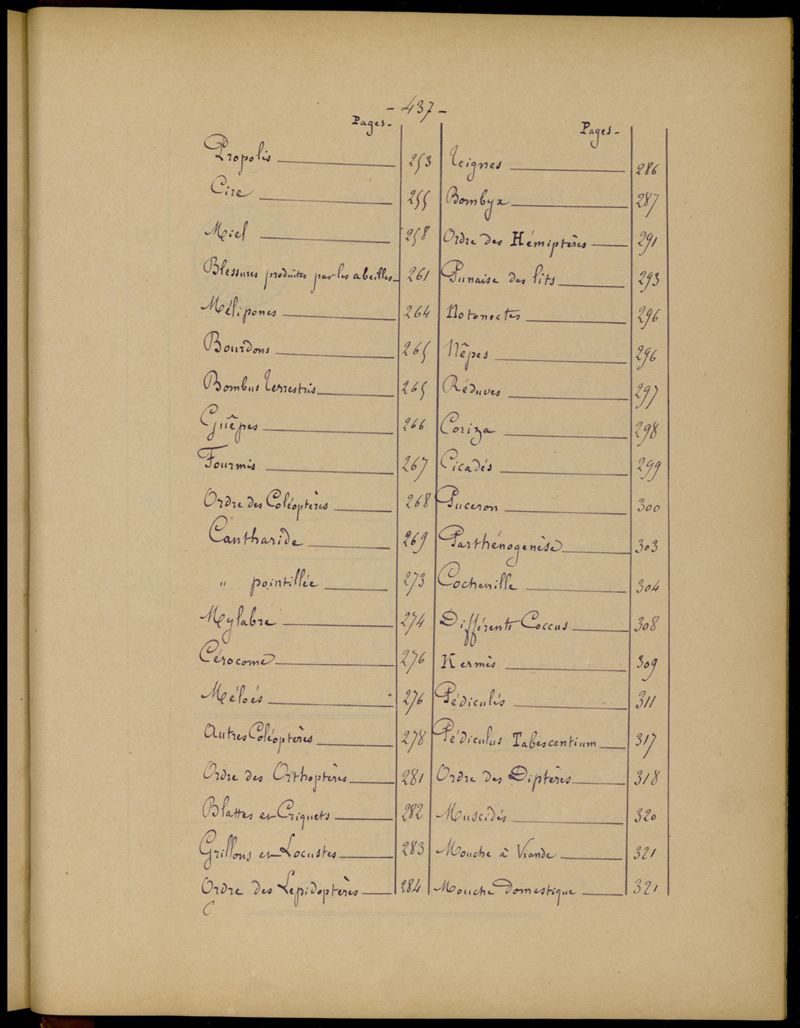 - 437 -
Pages -
Propolis 253
Cire 255
Miel 258
Blessures produites par les abeilles 261
Mélipones 264
Bourdons 265
Bombus terrestris 265
Guêpes 266
Fourmis 267
Ordre des Coléoptères 268
Cantharide 269
" pointillée 273
Mylabre 274
Cérocome 276
Méloés 276
Autres Coléoptères 278
Ordre des Orthoptères 281
Blattes et Criquets 282
Grillons et Locustes 283
Ordre des Lepidoptères 284
Pages -
Teignes 286
Bombyx 287
Ordre des Hémiptères 291
Punaise des lits 293
Notonectes 296
Nêpes 296
Réduves 297
Coriza 298
Cicadés 299
Puceron 300
Parthénogenèse 303
Cochenille 304
Différents Coccus 308
Kermès 309
Pédiculés 311
Pédiculus Tabescentium 317
Ordre des Diptères 318
Muscidés 320
Mouche à Viande 321
Mouche Domestique 321